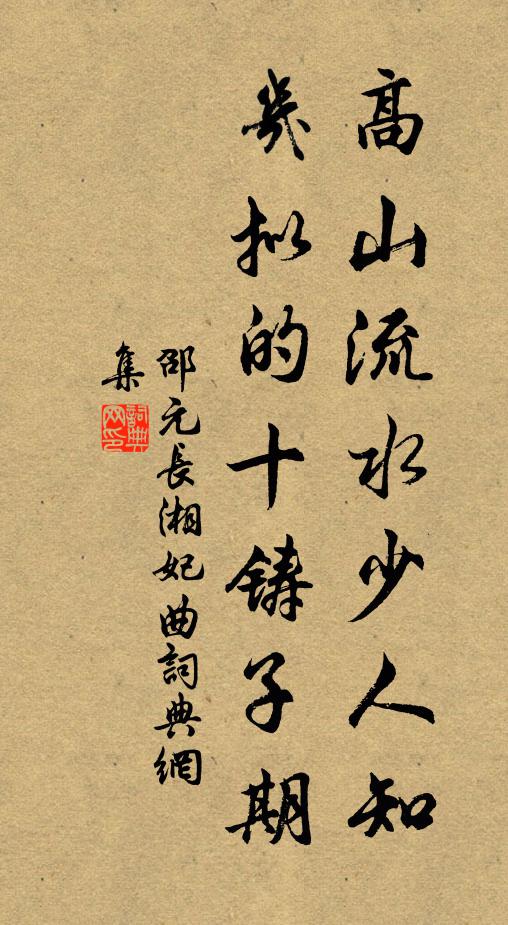 高山流水少人知
幾拟的十鑄子期
邵元長湘妃曲詞典網
集
詞典
网印